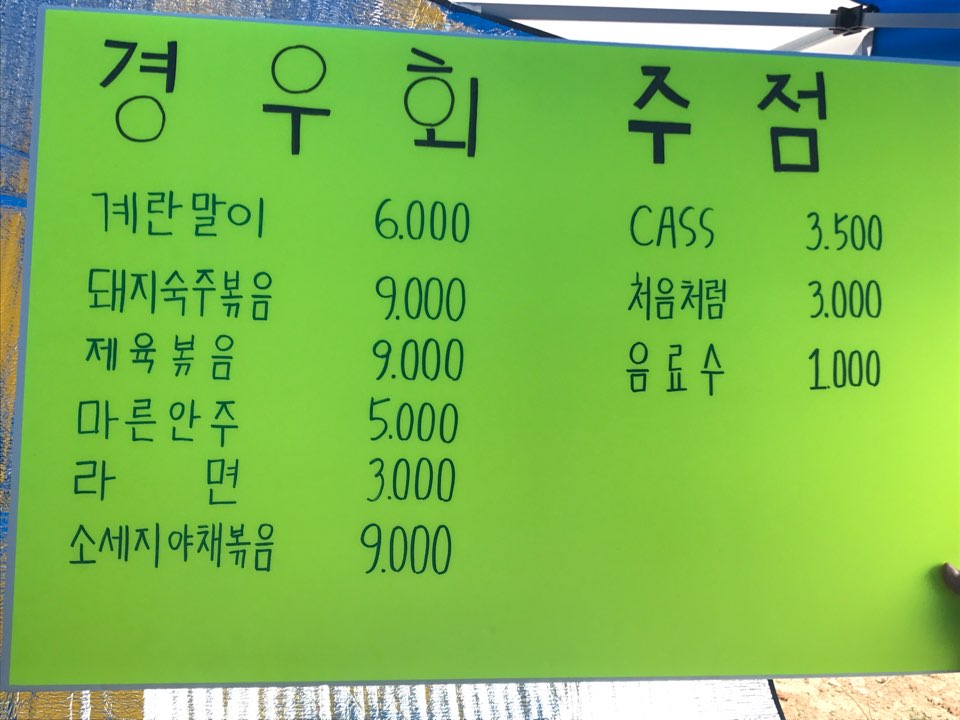 경우회 주점
계란말이 6.000
돼지숙주볶음 9.000
제육볶음 9.000
마른안주 5.000
라면 3.000
소세지야채볶음 9.000
CASS 3.500
처음처럼 3.000
음료수 1.000